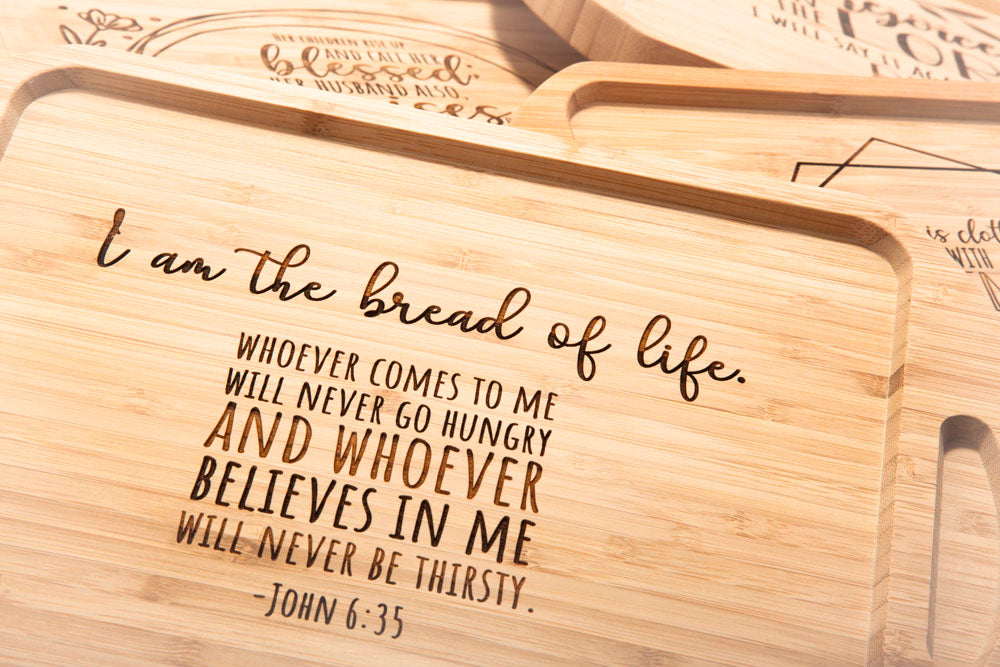 HER CHILDREN RISE UP
AND CALL HER
blessed;
HER HUSBAND ALSO,
THE
I WILL SAY IT
is
WITH
I am the bread of life.
WHOEVER COMES TO ME
WILL NEVER GO HUNGRY
AND WHOEVER
BELIEVES IN ME
WILL NEVER BE THIRSTY.
-JOHN 6:35